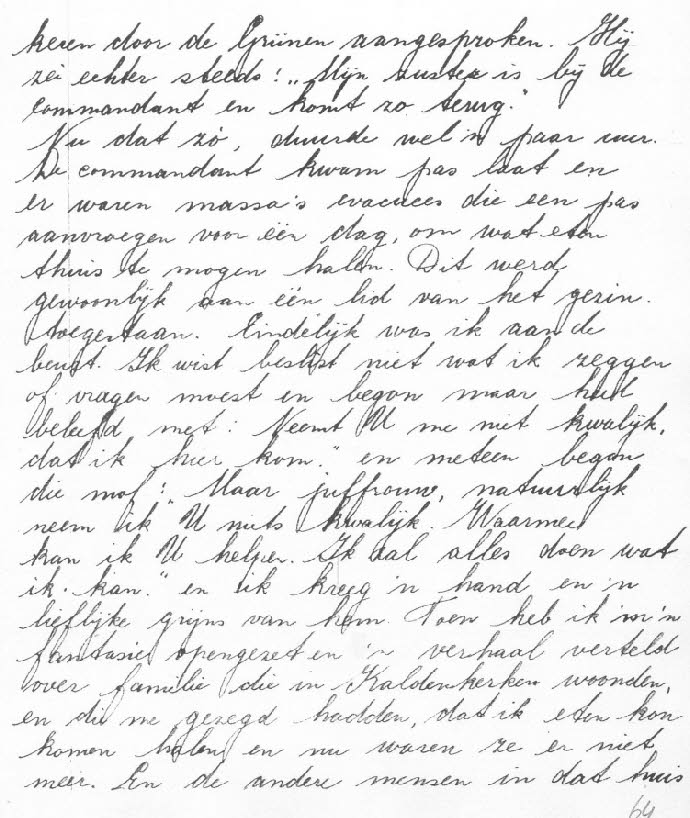 keren door de Grünen aangesproken. Hij
zei echter steeds: „Mijn zuster is bij de
commandant en komt zo terug."
Nu dat zó, duurde wel 'n paar uur.
De commandant kwam pas laat en
er waren massa's evacuees die een pas
aanvroegen voor één dag, om wat eten
thuis te mogen halen. Dit werd
gewoonlijk aan één lid van het gezin.
toegestaan. Eindelijk was ik aan de
beurt. Ik wist beslist niet wat ik zeggen
of vragen moest en begon maar heel
beleefd met: Neemt U me niet kwalijk,
dat ik hier kom." en meteen begon
die mof: „Maar juffrouw, natuurlijk
neem ik U niets kwalijk. Waarmee
kan ik U helpen. Ik zal alles doen wat
ik kan." en ik kreeg 'n hand en 'n
lieflijke grijns van hem. Toen heb ik m'n
fantasie opengezet en 'n verhaal verteld
over familie die in Kaldenkerken woonden,
en die me gezegd hadden, dat ik eten kon
komen halen en nu waren ze er niet
meer. En de andere mensen in dat huis
64